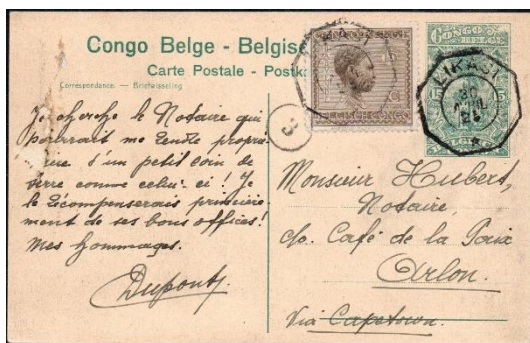 Congo Belge - Belgisc
Carte Postale - Postka
Correspondance. — Briefwisseling
CONGO BELGE
LIKASI
3
Je cherche le Notaire qui
pourrait me rendre proprié-
taire d'un petit coin de
terre comme celui-ci! Je
le récompenserais princière-
ment de ses bons offices!
Mes hommages.
Dupont
Monsieur Hubert,
Notaire,
c/o. Café de la Paix
Arlon.
Via Capetown.